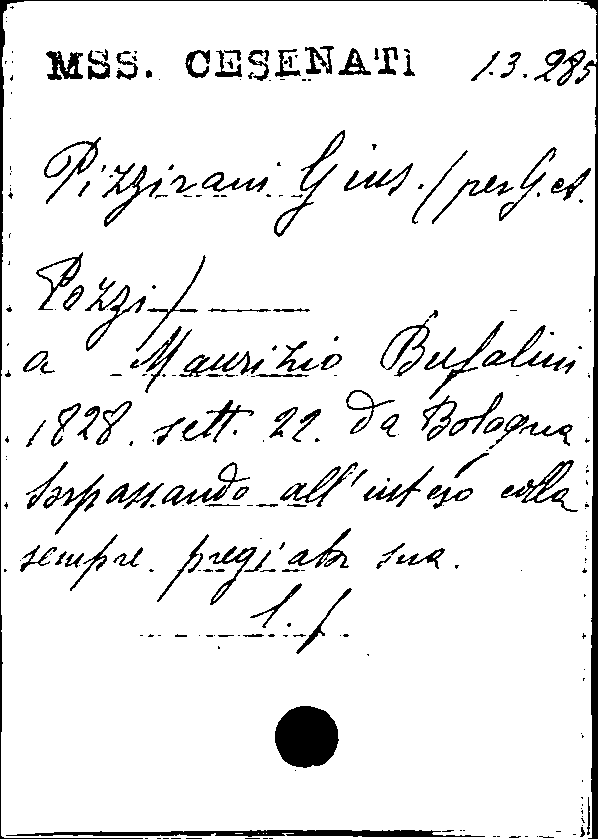 MSS. CESENATI 1.3.285
Pizzirani Gius. / per G. et.
Pozzi /
a Maurizio Bufalini
1828. sett. 22. Da Bologna
Sorpassando all'inteso colla
sempre pregiata sua.
l. f